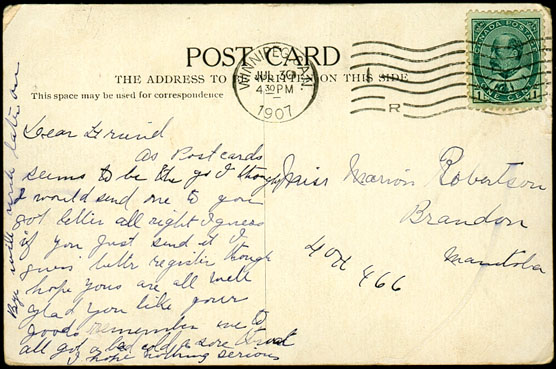 POST CARD
THE ADDRESS TO BE WRITTEN ON THIS SIDE
This space may be used for correspondence
WINNIPEG, MAN.
JUL 30
4 30 PM
1907
R
CANADA POSTAGE
1 CENT 1
Dear Friend
As Postcards
seems to be the go I thought
I would send one to you
got letter all right I guess
if you just send it I
guess better register though
hope yours are all well
glad you like your
goods remember me to
all got a bad cold & sore throat
I hope nothing serious
Bye will write later on
Miss Marion Robertson
Brandon
Manitoba
466